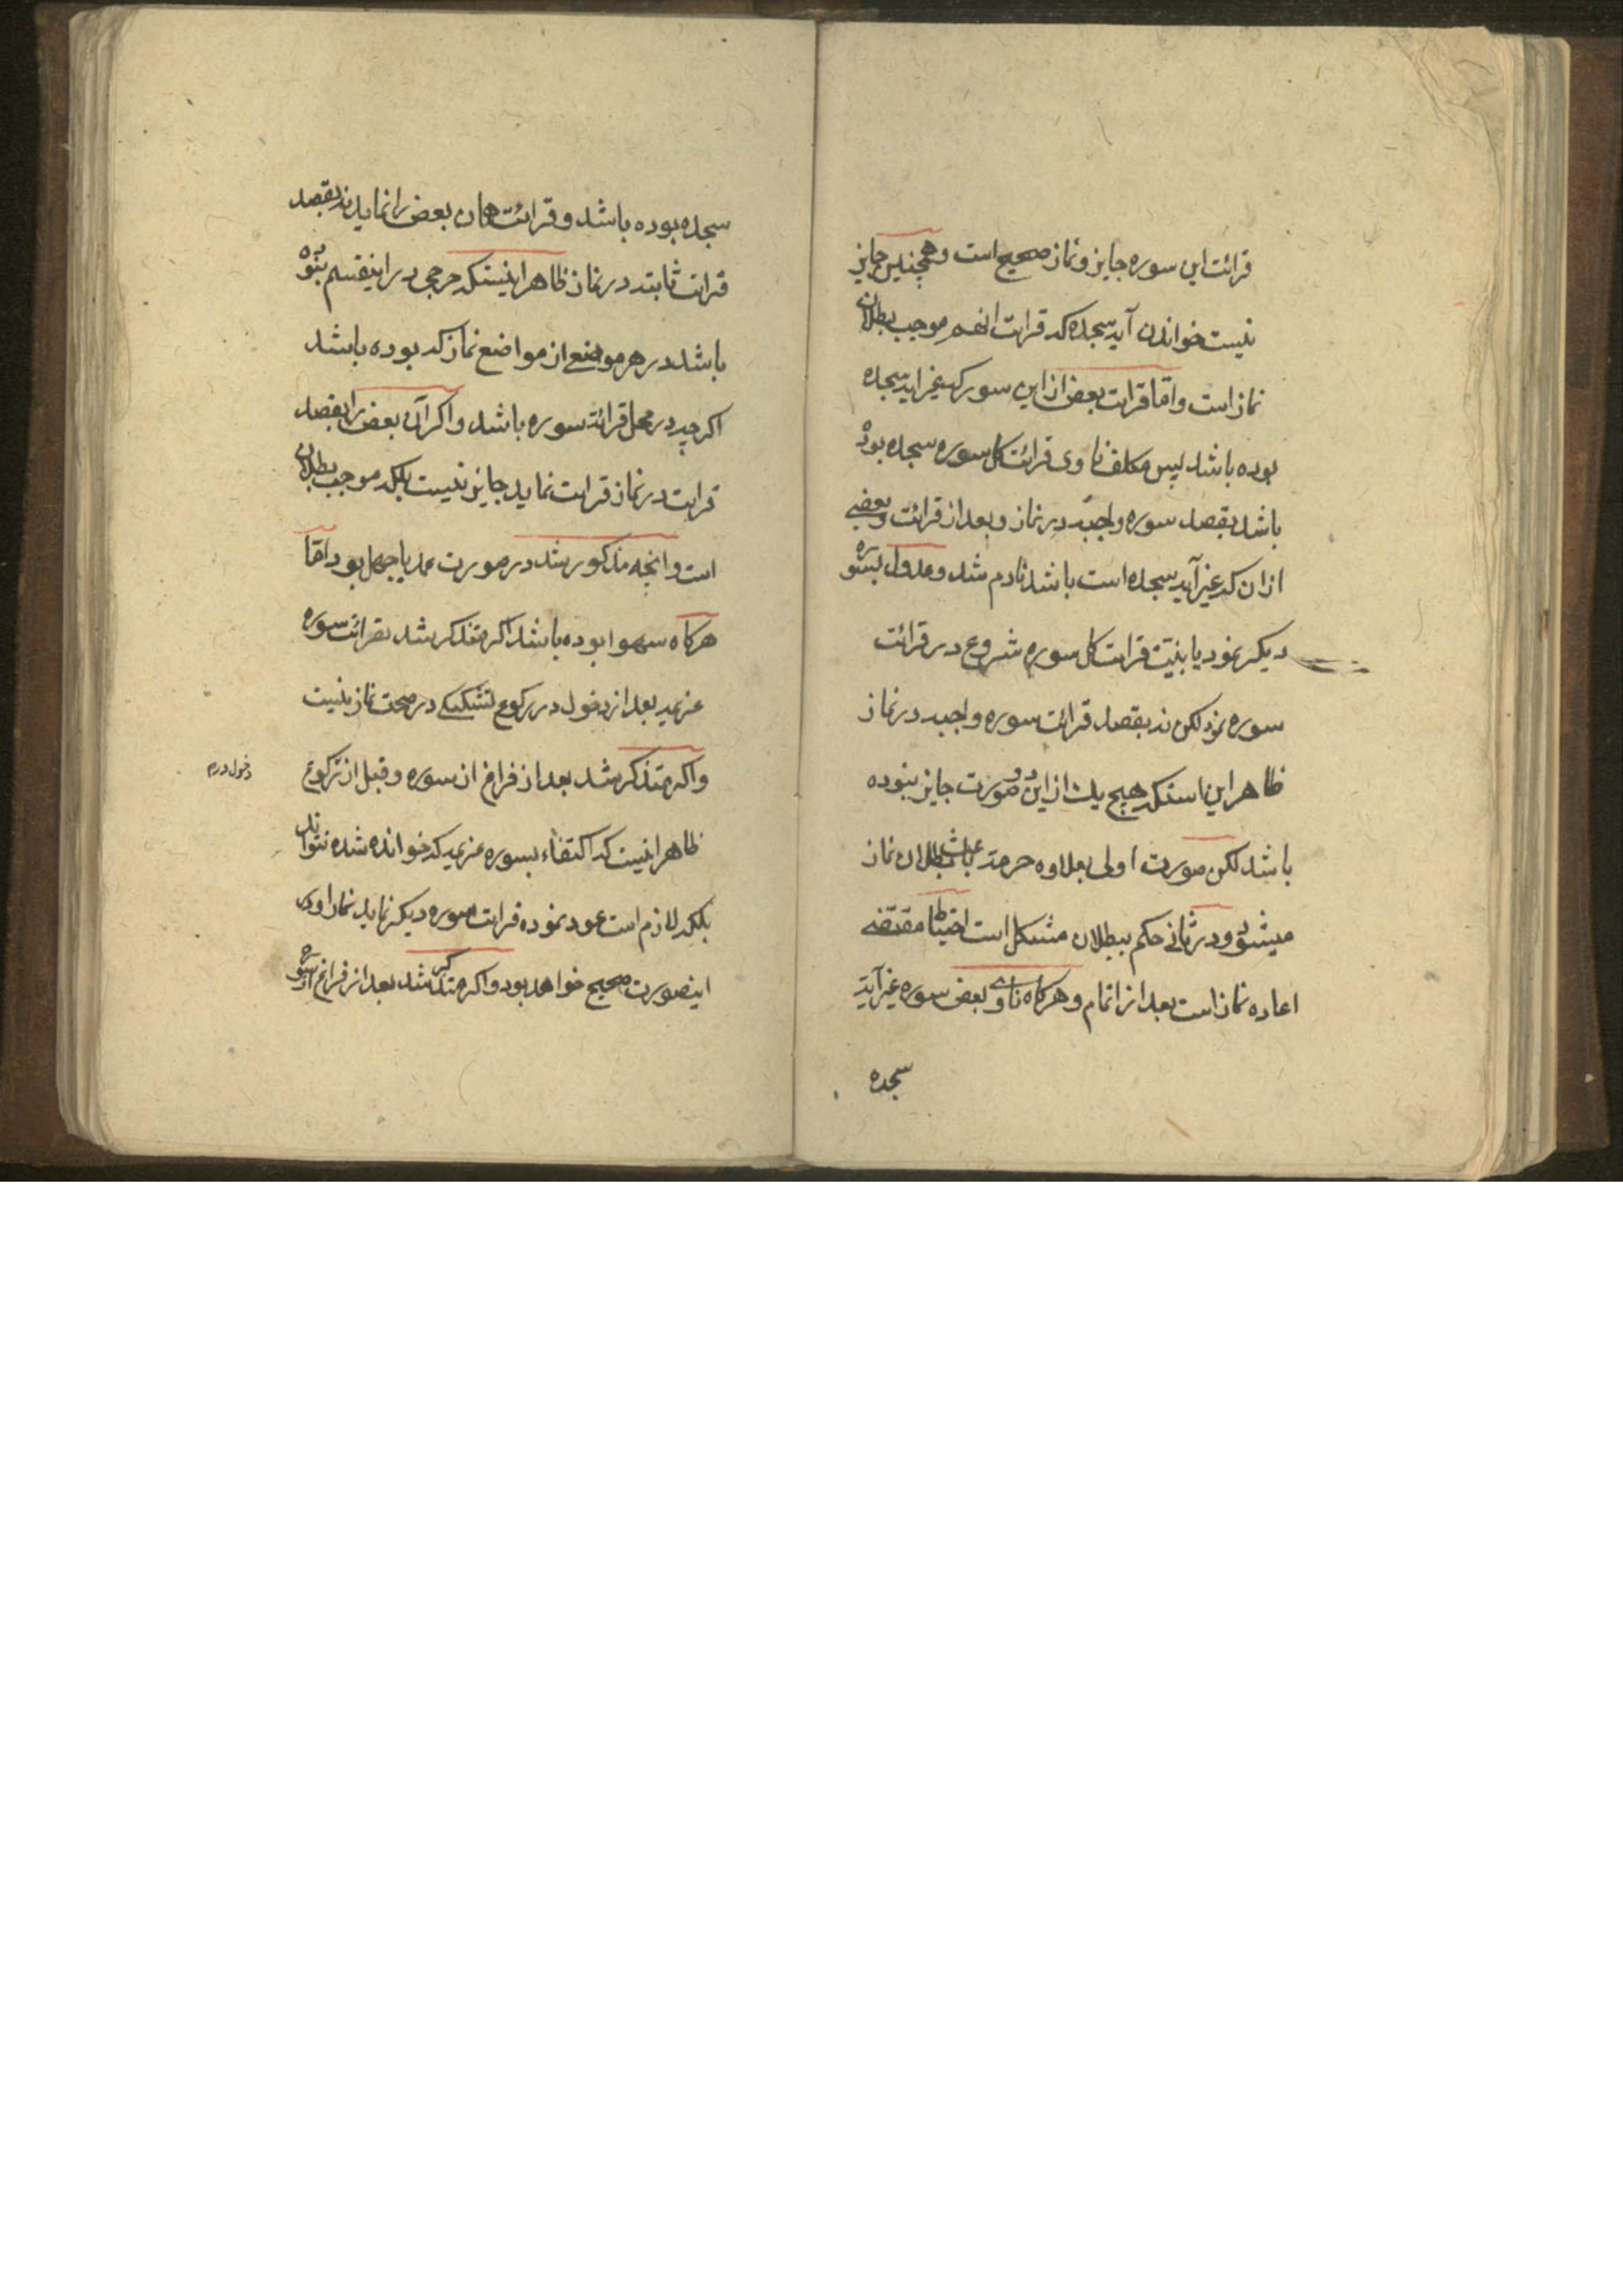 قرائت این سوره جایز و نماز صحیح است و همچنین جایز
نیست خواندن آیه سجده که قرائت انهم موجب بطلان
نماز است و اما قرائت بعض از این سور که غیر ایه سجده
بوده باشد پس مکلف ناوی قرائت کل سوره سجده بوده
باشد بقصد سوره واجبه در نماز و بعد از قرائت بعضی
از ان که غیر آیه سجده است باشد نادم شد و عدول بسوره
دیکر نمود یا بنیّت قرائت کل سوره شروع در قرائت
سوره نمود لکن نه بقصد قرائت سوره واجبه در نماز
ظاهر این استکه هیچ یک از این دو صورت جایز نبوده
باشد لکن صورت اولی بعلاوه حرمة باعث بطلان نماز
میشود و در ثانی حکم ببطلان مشکل است احتیاط مقتضی
اعاده نماز است بعد از اتمام و هرکاه ناوی بعض سوره غیر آیه
سجده
سجده بوده باشد و قرائت همان بعض را نماید نه بقصد
قرائت ثابته در نماز ظاهر اینستکه حرجی در اینقسم نبوده
باشد در هر موضع از مواضع نماز که بوده باشد
اکرچه در محل قرائة سوره باشد و اکر آن بعض را بقصد
قرائت در نماز قرائت نماید جایز نیست بلکه موجب بطلان
است و انچه مذکور شد در صورت عمد یا جهل بود اما
هرکاه سهوا بوده باشد اکر متذکر شد بقرائت سوره
عزیمه بعد از دخول در رکوع تشکیکی در صحت نماز نیست
واکر متذکر شد بعد از فراغ از سوره و قبل از رکوع
دخول در
ظاهر اینست که اکتفاء بسوره عزیمه که خوانده شده نتواند
بلکه لازم است عود نموده قرائت سوره دیکر نماید نماز او در
اینصورت صحیح خواهد بود و اکر متذکر شد بعد از فراغ از سوره